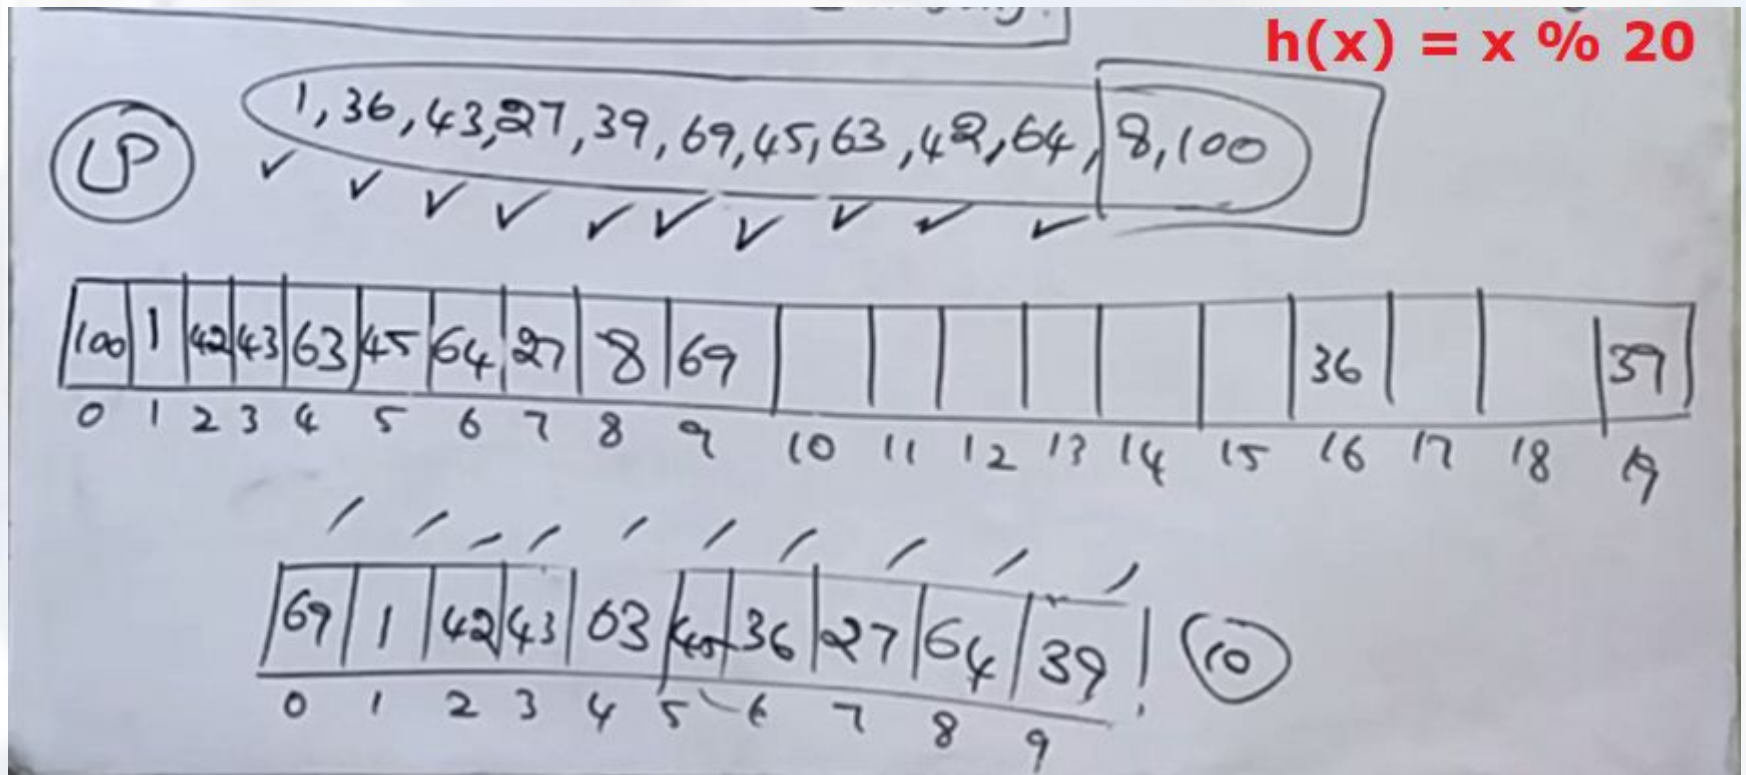 h(x) = x % 20
LP
1, 36, 43, 27, 39, 69, 45, 63, 42, 64, 8, 100
100 1 42 43 63 45 64 27 8 69 36 39
0 1 2 3 4 5 6 7 8 9 10 11 12 13 14 15 16 17 18 19
69 1 42 43 63 45 36 27 64 39 10
0 1 2 3 4 5 6 7 8 9